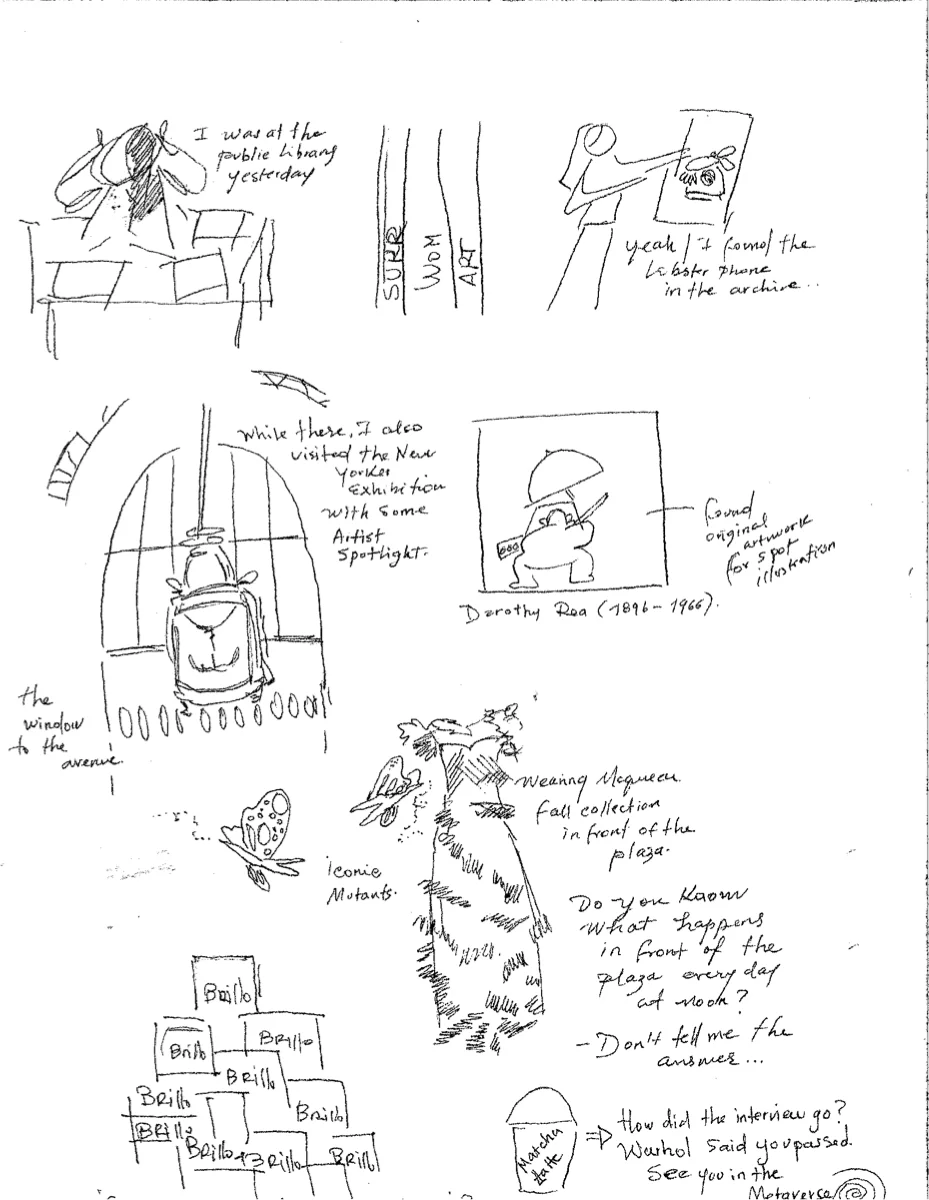 I was at the
public Library
yesterday
SURR
WOM
ART
yeah! I found the
Lobster phone
in the archive..
While there, I also
visited the New
Yorker
Exhibition
with some
Artist
Spotlight.
found
original
artwork
for spot
illustration
Dorothy Rea (1896-1966).
the
window
to the
avenue.
Wearing Mcqueen
fall collection
in front of the
plaza.
iconic
Mutants.
Do you Know
what happens
in front of the
plaza every day
at noon?
- Don't tell me the
answer...
Brillo
Brillo
Brillo
Brillo
Brillo
Brillo
Brillo
Brillo
Brillo
Brillo
Matcha
Latte
How did the interview go?
Warhol said you passed.
See you in the
Metaverse